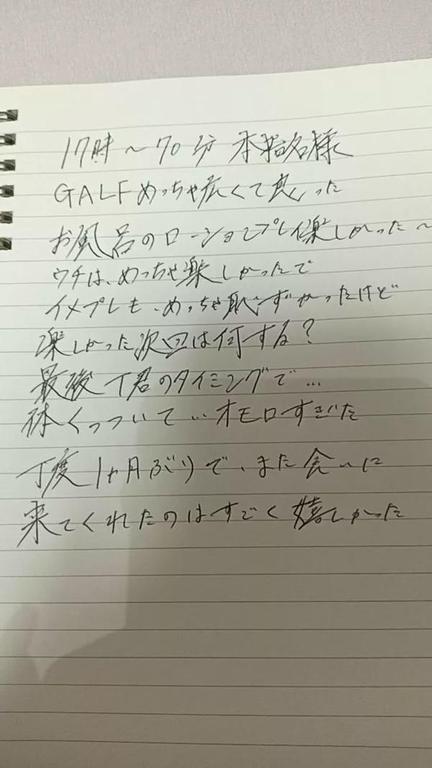 17時～70分 本指名様
GALFめっちゃ広くて良った
お風呂のローションプレイ楽しかった～
ウチは、めっちゃ楽しかったで
イメプレも、めっちゃ恥ずかったけど
楽しかった次回は何する?
最後T君のタイミングで…
体くっついて…オモロすぎた
丁度1ヶ月ぶりで、また会いに
来てくれたのはすごく嬉しかった